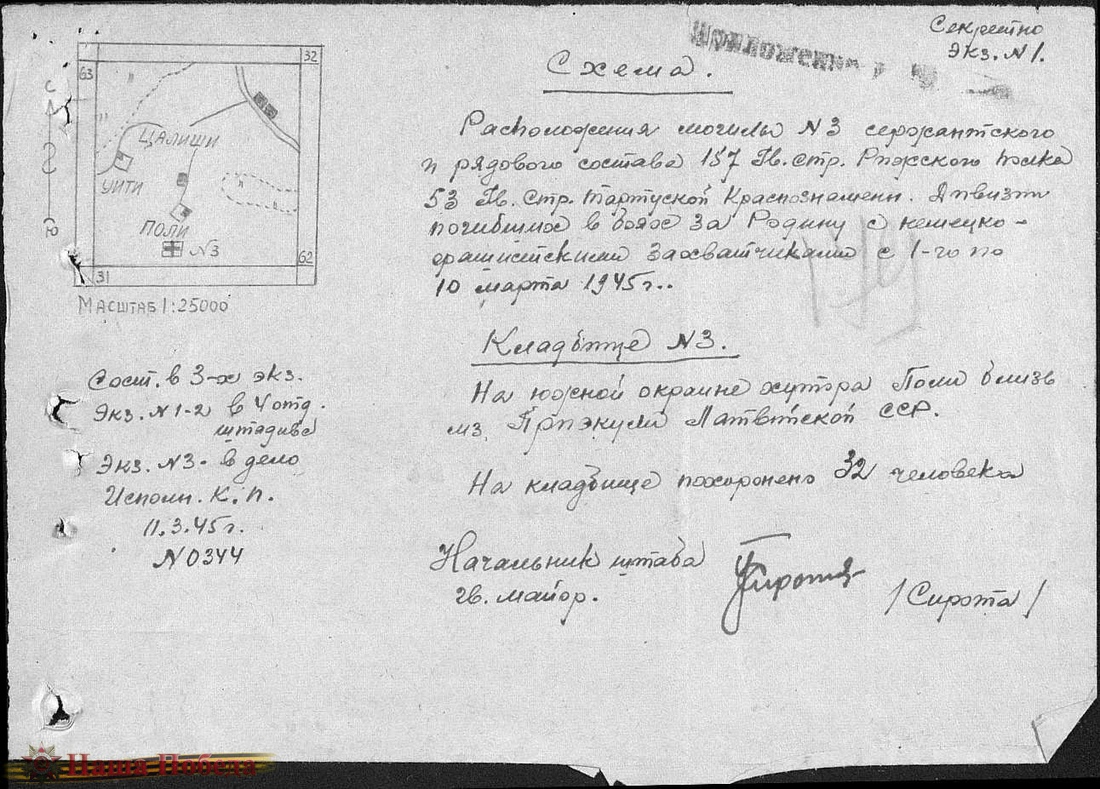 Секретно
Экз. N 1.
Приложение
Схема.
Расположения могилы N3 сержантского
и рядового состава 157 Гв. стр. Рижского полка
53 Гв. Стр. Тартуской Краснознаменн. Дивизии
погибшиее в боях за Родину с немецко-
фашистскими захватчиками с 1-го по
10 марта 1945г..
Кладбище N3.
На южной окраине хутора Поли близь
мз. Припэкули Латвийской ССР.
На кладбище похоронено 32 человека
Начальник штаба
гв. майор.
/Сирота/
63
32
С
Ю
ЦАЛИШИ
УИТИ
ПОЛИ
N3
31
62
Масштаб 1:25000
Сост. в 3-х экз.
Экз. N1-2 в 4 отд.
штадива
Экз. N3- в дело
Исполн. К.П.
11.3.45г.
N0344
Наша Победа